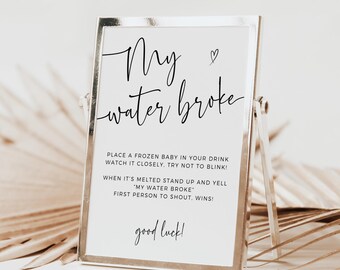 My
water broke
PLACE A FROZEN BABY IN YOUR DRINK
WATCH IT CLOSELY, TRY NOT TO BLINK!
WHEN IT'S MELTED STAND UP AND YELL
"MY WATER BROKE"
FIRST PERSON TO SHOUT, WINS!
good luck!